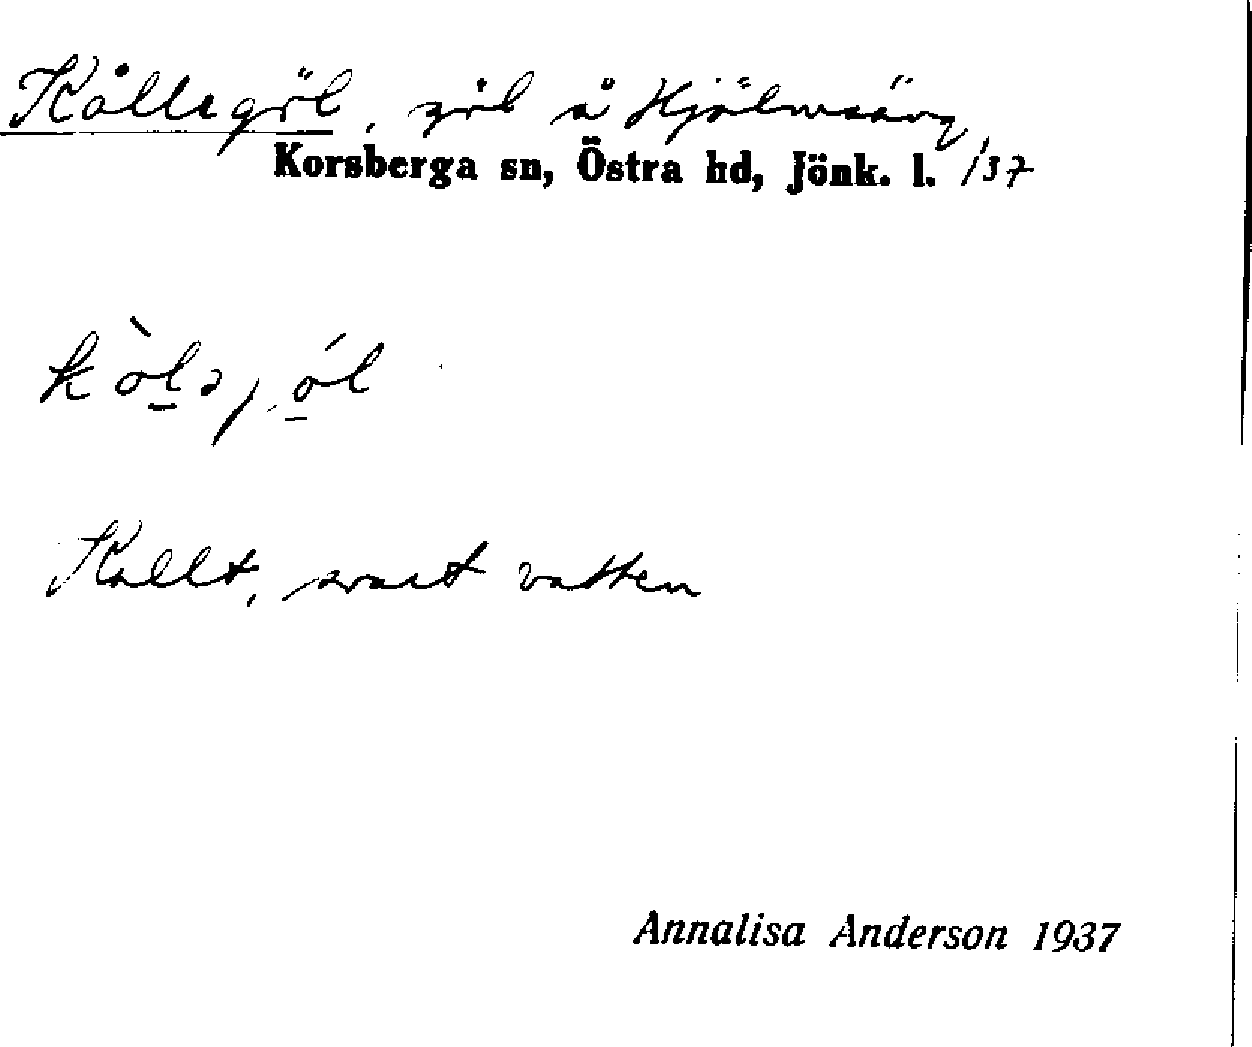 Kållegöl, göl å Hjälmsäng,
Korsberga sn, Östra hd, Jönk. l. /37
Kallt, svart vatten
Annalisa Anderson 1937